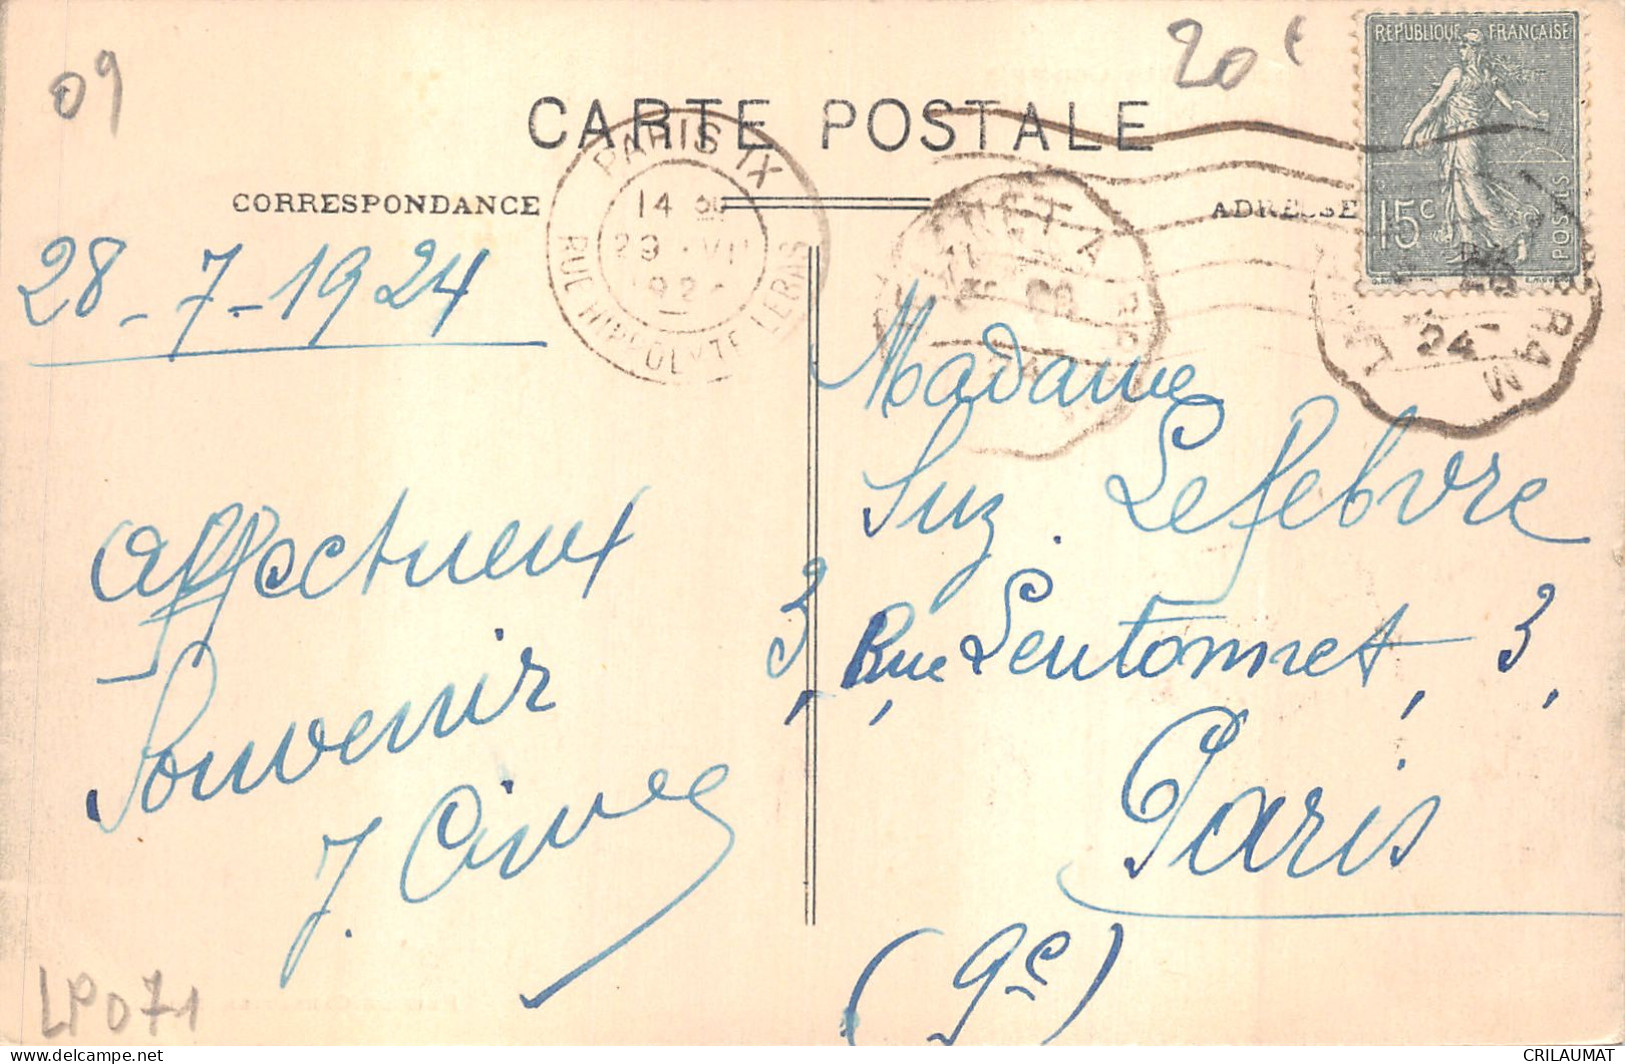 09
20
CARTE POSTALE
REPUBLIQUE FRANÇAISE
15c
POSTES
CORRESPONDANCE
ADRESSE
PARIS IX
14
29 · VII
RUE HIPPOLYTE LEBAS
24
28-7-1924
Affectueux
Souvenir
J.
Madame
Suz. Lefebvre
3, Rue Lentonnet, 3,
Paris
(9e)
LP071
CRILAUMAT